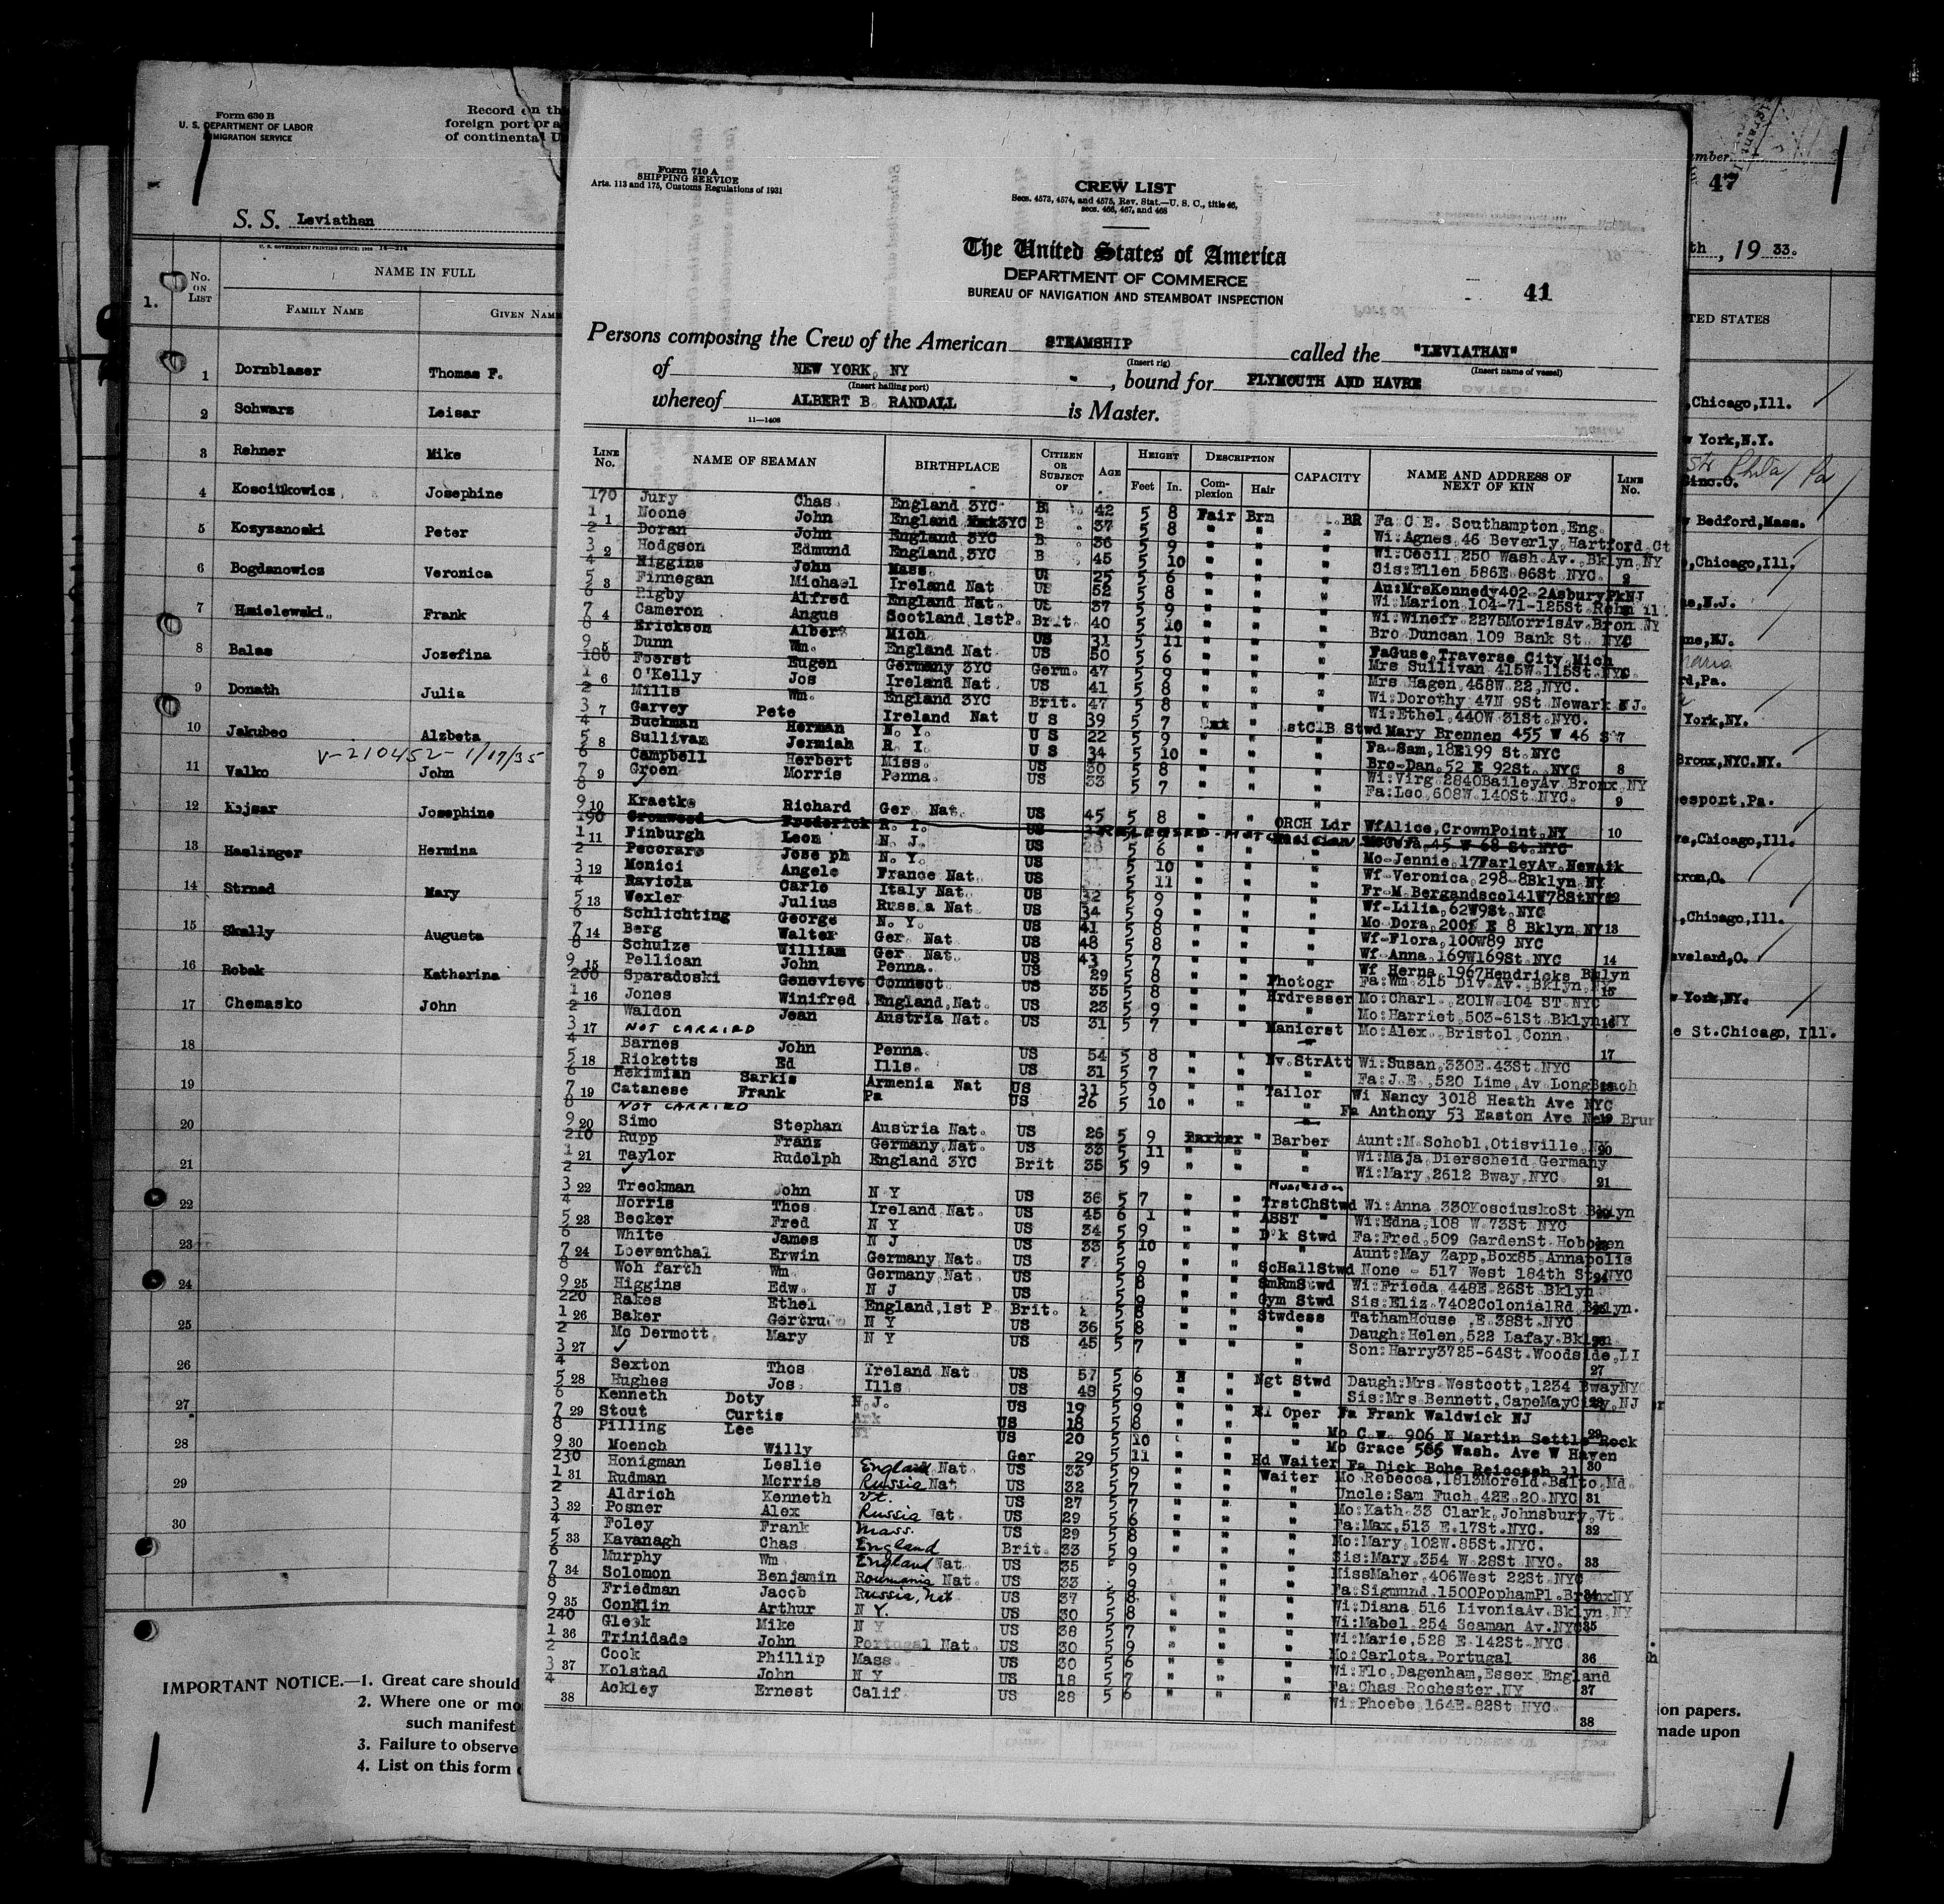 Form 630 B
U. S. DEPARTMENT OF LABOR
IMMIGRATION SERVICE
Record on th
foreign port or a
of continental U
S. S. Leviathan
NAME IN FULL
No. ON LIST
FAMILY NAME
GIVEN NAME
1.
1 Dornblaser Thomas F.
2 Schwarz Leisar
3 Rehner Mike
4 Kosciukowicz Josephine
5 Kosyzanoski Peter
6 Bogdanowicz Veronica
7 Hmielewski Frank
8 Balas Jozefina
9 Donath Julia
10 Jakubec Alzbeta
V-210452- 1/17/35
11 Valko John
12 Kojsar Josephine
13 Haslinger Hermina
14 Strnad Mary
15 Skally Augusta
16 Robak Katharina
17 Chemasko John
18
19
20
21
22
23
24
25
26
27
28
29
30
IMPORTANT NOTICE.—1. Great care should
2. Where one or mo
such manifest
3. Failure to observe
4. List on this form
Form 710 A
SHIPPING SERVICE
Arts. 113 and 175, Customs Regulations of 1931
CREW LIST
Secs. 4573, 4574, and 4575, Rev. Stat.—U. S. C., title 46,
secs. 466, 467, and 468
The United States of America
DEPARTMENT OF COMMERCE
BUREAU OF NAVIGATION AND STEAMBOAT INSPECTION
41
Persons composing the Crew of the American STEAMSHIP called the "LEVIATHAN"
(Insert rig) (Insert name of vessel)
of NEW YORK, NY , bound for PLYMOUTH AND HAVRE
(Insert hailing port)
whereof ALBERT B. RANDALL is Master.
11—1408
LINE No. NAME OF SEAMAN BIRTHPLACE CITIZEN OR SUBJECT OF AGE HEIGHT Feet In. DESCRIPTION Complexion Hair CAPACITY NAME AND ADDRESS OF NEXT OF KIN LINE No.
170 Jury Chas England 3YC B 42 5 8 Fair Brn BR Fa:C.E. Southampton,Eng.
1 Noone John England 3YC B 37 5 8 " " " Wi:Agnes,46 Beverly,Hartford Ct
2 Doran John England 3YC B 36 5 9 " " " Wi:Cecil,250 Wash.Av.Bklyn NY
3 Hodgson Edmund England,3YC B 45 5 10 " " " Sis:Ellen 586E 86St NYC.
4 Higgins John Mass. US 25 5 6 " " " An:MrsKennedy402-2AsburyPkNJ
5 Finnegan Michael Ireland Nat US 52 5 8 " " " Wi:Marion 104-71-125St
6 Rigby Alfred England Nat. US 37 5 9 " " " Wi:Winefr 2275MorrisAv.Bron NY
7 Cameron Angus Scotland 1stP. Brit. 40 5 10 " " " Bro Duncan 109 Bank St NYC
8 Erickson Albert Mich US 31 5 11 " " " FaGuse,Traverse City,Mich
9 Dunn Wm. England Nat US 50 5 6 " " " Mrs Sullivan 415W.115St.NYC.
180 Foerst Eugen Germany 3YC Germ. 47 5 9 " " " Mrs Hagen,468W 22,NYC.
1 O'Kelly Jos Ireland Nat US 41 5 8 " " " Wi:Dorothy 47N 9St Newark NJ.
2 Mills Wm. England 3YC Brit. 47 5 8 " " " Wi:Ethel,440W 31St.NYC.
3 Garvey Pete Ireland Nat U S 39 5 7 stClB Stwd Mary Brennen 455 W 46 St
4 Buckman Herman N. Y. U S 22 5 9 " " " Fa-Sam,18E199 St.NYC
5 Sullivan Jermiah R. I. U S 34 5 10 " " " Bro-Dan,52 E 92St. NYC
6 Campbell Herbert Miss. US 30 5 8 " " " Wi:Virg 2840BaileyAv Bronx NY
7 Groen Morris Penna. US 33 5 7 " " " Fa:Leo,608W.140St.NYC.
8 ✓
9 Kraetke Richard Ger Nat. US 45 5 8 " " ORCH Ldr WfAlice,CrownPoint,NY
190 Frederick R. I. US RELEASED Musician 45 W 68 St.NYC
1 Finburgh Leon N. J. US 28 5 6 " " " Mo-Jennie,17FarleyAv.Newark
2 Pecoraro Joseph N. Y. US 5 10 " " " Wf-Veronica,298-8Bklyn NY
3 Monici Angelo France Nat US 5 11 " " " Fr-M.Bergandscol41W78StNYC
4 Raviola Carlo Italy Nat. US 32 5 9 " " " Wf-Lilia,62W9St.NYC
5 Wexler Julius Russia Nat US 34 5 9 " " " Mo Dora,2001 E 8 Bklyn,NY
6 Schlichting George N. Y. US 41 5 8 " " " Wf-Flora,100W89 NYC
7 Berg Walter Ger Nat US 48 5 8 " " " Wf-Anna,169W169St.NYC
8 Schulze William Ger Nat. US 43 5 7 " " " Wf Herna,1967Hendricks Bklyn
9 Pellican John Penna. US 29 5 8 " " Photogr Fa:Wm 315 Div.Av. Bklyn,NY
200 Sparadoski Genevieve Connect US 35 5 8 " " Hrdresser Mo:Charl. 201W 104 ST NYC
1 Jones Winifred England,Nat. US 23 5 9 " " " Mo:Harriet,503-61St Bklyn NY
2 Waldon Jean Austria Nat. US 31 5 7 " " Manicrst Mo:Alex. Bristol Conn.
3 NOT CARRIED
4 Barnes John Penna. US 54 5 8 " " Nv.StrAtt Wi:Susan,330E.43St.NYC
5 Ricketts Ed Ills. US 31 5 7 " " " Fa:J.E.,520 Lime,Av LongBeach
6 Hekimian Sarkis Armenia Nat US 31 5 9 " " Tailor Wi Nancy 3018 Heath Ave NYC
7 Catanese Frank Pa US 26 5 10 " " " Fa Anthony 53 Easton Ave New Brun
8 NOT CARRIED
9 Simo Stephan Austria Nat. US 26 5 9 " Barber Aunt:M.Schobl,Otisville,NY
210 Rupp Franz Germany,Nat. US 33 5 11 " " " Wi:Maja,Dierscheid Germany
1 Taylor Rudolph England 3YC Brit 35 5 9 " " " Wi:Mary,2612 Bway,NYC
2 ✓
3 Treckman John N Y US 36 5 7 " " TrstChStwd Wi:Anna 330KosciuskoSt Bklyn
4 Norris Thos Ireland Nat. US 45 6 1 " " ASST " Wi:Edna,108 W 73St NYC
5 Becker Fred N Y US 34 5 9 " " D'k Stwd Fa:Fred,509 GardenSt Hoboken
6 White James N J US 33 5 10 " " " Aunt:May Zapp,Box85,Annapolis
7 Loeventhal Erwin Germany Nat. US 5 9 " " ScHallStwd None - 517 West 184th St NYC
8 Woh farth Wm Germany,Nat. US 5 8 " " SmRmStwd Wi:Frieda,448E.26St Bklyn
9 Higgins Edw. N J US 5 9 " " Gym Stwd Sis:Eliz 7402ColonialRd Bklyn.
220 Rakes Ethel England,1st P Brit. 5 8 " " Stwdess TathamHouse E.38St.NYC
1 Baker Gertru N Y US 36 5 8 " " " Daugh:Helen,522 Lafay.Bklyn
2 Mc Dermott Mary N Y US 45 5 7 " " " Son:Harry3725-64St.Woodside,LI
3 ✓
4 Sexton Thos Ireland Nat US 57 5 6 " " Ngt Stwd Daugh:Mrs Westcott,1234 BwayNYC
5 Hughes Jos. Ills US 48 5 9 " " " Sis:Mrs Bennett,CapeMayCity,NJ
6 Kenneth Doty N.J. US 19 5 9 " " El Oper Fa Frank Waldwick NJ
7 Stout Curtis Ark US 18 5 8 " " " Mo C.w. 906 N Martin Settle Rock
8 Pilling Lee US 20 5 10 " " Mo Grace 566 Wash. Ave W Haven
9 Moench Willy Ger 29 5 11 " " Hd Waiter Fa Dick Bohe
230 Honigman Leslie England Nat US 33 5 9 " " Waiter Mo Rebecca,1813Moreld.Balto,Md
1 Rudman Morris Russia Nat US 32 5 7 " " " Uncle:Sam Fuch,42E.20.NYC
2 Aldrich Kenneth Vt. US 27 5 7 " " " Mo:Kath 33 Clark,Johnsbury,Vt.
3 Posner Alex Russia Nat. US 29 5 6 " " " Fa:Max,513 E.17St.NYC.
4 Foley Frank Mass. US 29 5 8 " " " Mo:Mary,102W.85St.NYC.
5 Kavanagh Chas England Brit. 33 5 9 " " " Sis:Mary,354 W.28St NYC.
6 Murphy Wm England Nat US 35 9 " " " MissMaher,406West 22St NYC
7 Solomon Benjamin Roumania Nat. US 33 9 " " " Fa:Sigmund.1500PophamPl.BronxNY
8 Friedman Jacob Russia, nat US 37 5 8 " " " Wi:Diana 516 LivoniaAv.Bklyn,NY
9 Conklin Arthur N Y. US 30 5 8 " " " Wi:Mabel 254 Seaman Av.NYC
240 Gleek Mike N Y US 38 5 7 " " " Wi:Marie,528 E.142St.NYC.
1 Trinidade John Portugal Nat. US 30 5 9 " " " Mo:Carlota,Portugal
2 Cook Phillip Mass. US 30 5 6 " " " Wi:Flo,Dagenham,Essex England
3 Kolstad John N Y US 18 5 7 " " " Fa:Chas Rochester,NY
4 Ackley Ernest Calif. US 28 5 6 " " " Wi:Phoebe 164E.82St NYC.
38
mber
47
th, 19 33.
TED STATES
,Chicago,Ill.
York,N.Y.
Str Phila/ Pa
Bedford,Mass.
,Chicago,Ill.
e,N.J.
me,NJ.
rd,Pa.
York,NY.
Bronx,NYC.NY.
esport,Pa.
e,Chicago,Ill.
kron,O.
,Chicago,Ill.
eveland,O.
York,NY.
e St.Chicago, Ill.
ion papers.
made upon